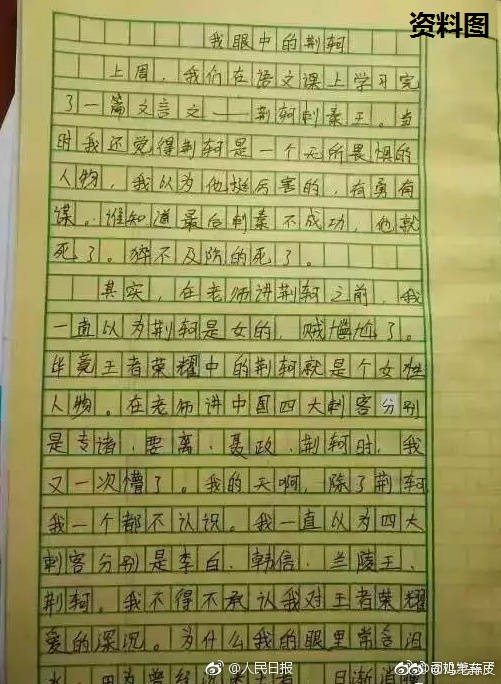 资料图
我眼中的荆轲
上周，我们在语文课上学习完
了一篇文言文——荆轲刺秦王。当
时我还觉得荆轲是一个无所畏惧的
人物，我以为他挺厉害的，有勇有
谋。谁知道最后刺秦不成功，他就
死了。猝不及防的死了。
其实，在老师讲荆轲之前，我
一直以为荆轲是女的，贼尴尬了。
毕竟王者荣耀中的荆轲就是个女性
人物。在老师讲中国四大刺客分别
是专诸、要离、聂政、荆轲时，我
又一次懵了。我的天啊，除了荆轲
我一个都不认识。我一直以为四大
刺客分别是李白、韩信、兰陵王、
荆轲。我不得不承认我对王者荣耀
爱的深沉。为什么我的眼里常含泪
水，因为曾经 日渐消瘦
@人民日报